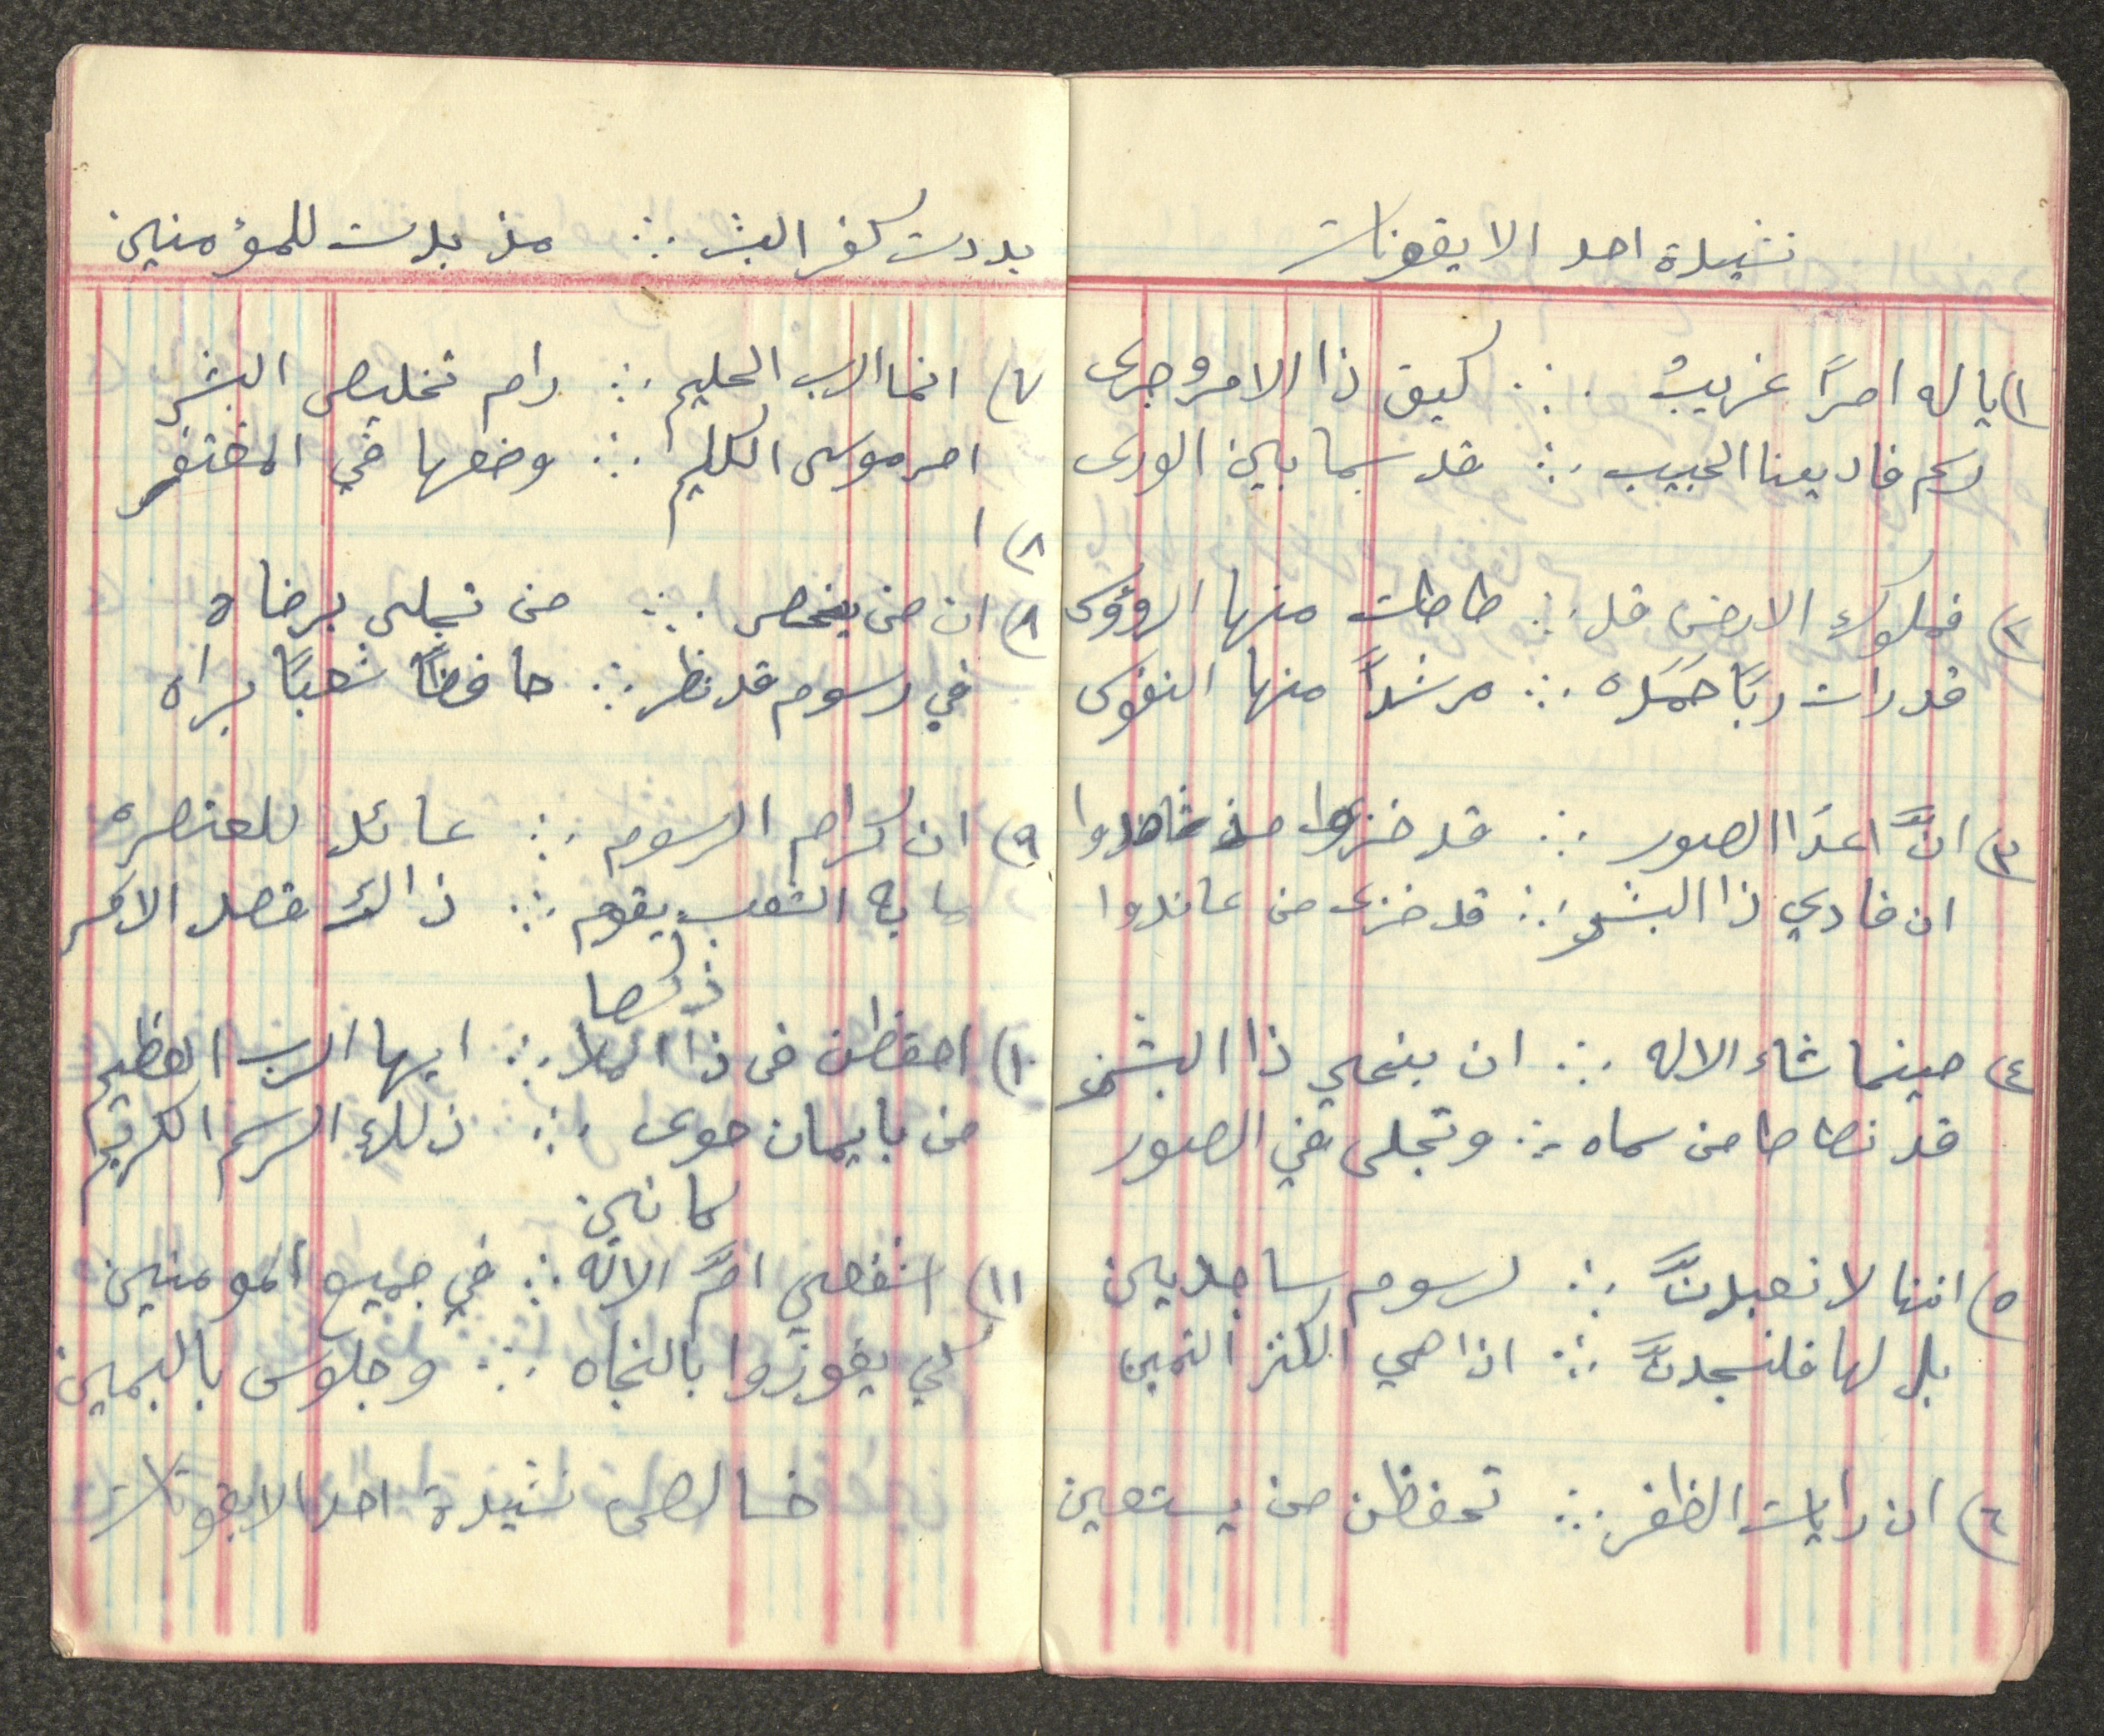 نشيدة احد الايقونات
١) يا له امرًا غريبُ ∴ كيف ذا الامر وجرى
رسم فاديعنا الحبيب ∴ قد سما بين الورى
٢) فملوك الارض قد ∴ طاطت منها الرؤوس
قد رات ربًا حَمَده ∴ مرشداً منها النفوس
٣) انَّ اعدَا الصور ∴ قد خزوا مذ شاهدوا
ان فادي ذا البشر ∴ قد خزى من عاندوا
٤) حينما شاء الاله ∴ ان ينجي ذا البشر
قد تطاطا من سماه ∴ وتجلى في الصور
٥) اننا لا نعبدنَّ ∴ لرسوم ساجدين
بل لها فلنسجدنَّ ∴ اذا هي الكنز الثمين
٦) ان رايات الظفر ∴ تحفظن من يستعين
بددت كفر البشر ∴ مذ بدت للمؤمنين
٧) انما الرب الحليم ∴ رام تخليص البشر
امر موسى الكليم ∴ وضعها في المقتفر
٨) ا
٨) ان من ينحصر ∴ من تجلى برضاه
في رسوم قد نظر ∴ حافضًا شعبًا براه
٩) ان اكرام الرسوم ∴ عائد للعنصره
ما به الشعب يقوم ∴ ذالك قصد الاكر
ذكصا
١٠) احفظن في ذا الملا ∴ ايها الرب العظيم
من بايمان حوى ∴ ذلك الرسم الكريم
كانين
١١) اشفعي امَّ الاله ∴ في جميع المومنين
كي يفوزوا بالنجاه ∴ وجلوس باليمين
خالص نشيدة احد الايقونات